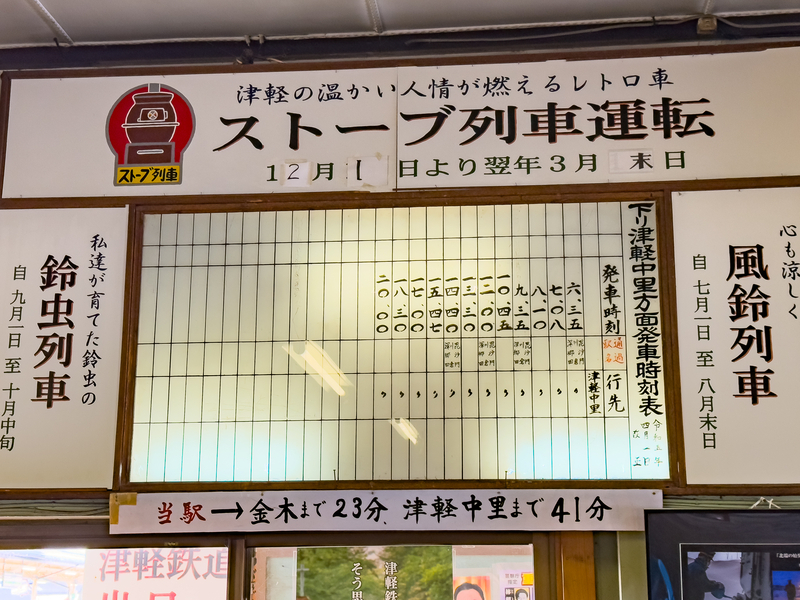 津軽の温かい人情が燃えるレトロ車
ストーブ列車運転
12月1日より翌年3月末日
ストーブ列車
心も涼しく
風鈴列車
自七月一日至八月末日
下り津軽中里方面発車時刻表
発車時刻
通過駅名
行先
六、三五
津軽中里
七、〇八
八、一〇
九、三五
一〇、四五
一二、〇〇
一三、三〇
一四、四〇
一五、四七
一七、〇〇
一八、三〇
二〇、〇〇
私達が育てた鈴虫の
鈴虫列車
自九月一日至十月中旬
当駅→金木まで23分 津軽中里まで41分
津軽鉄道
津軽鉄
そう思